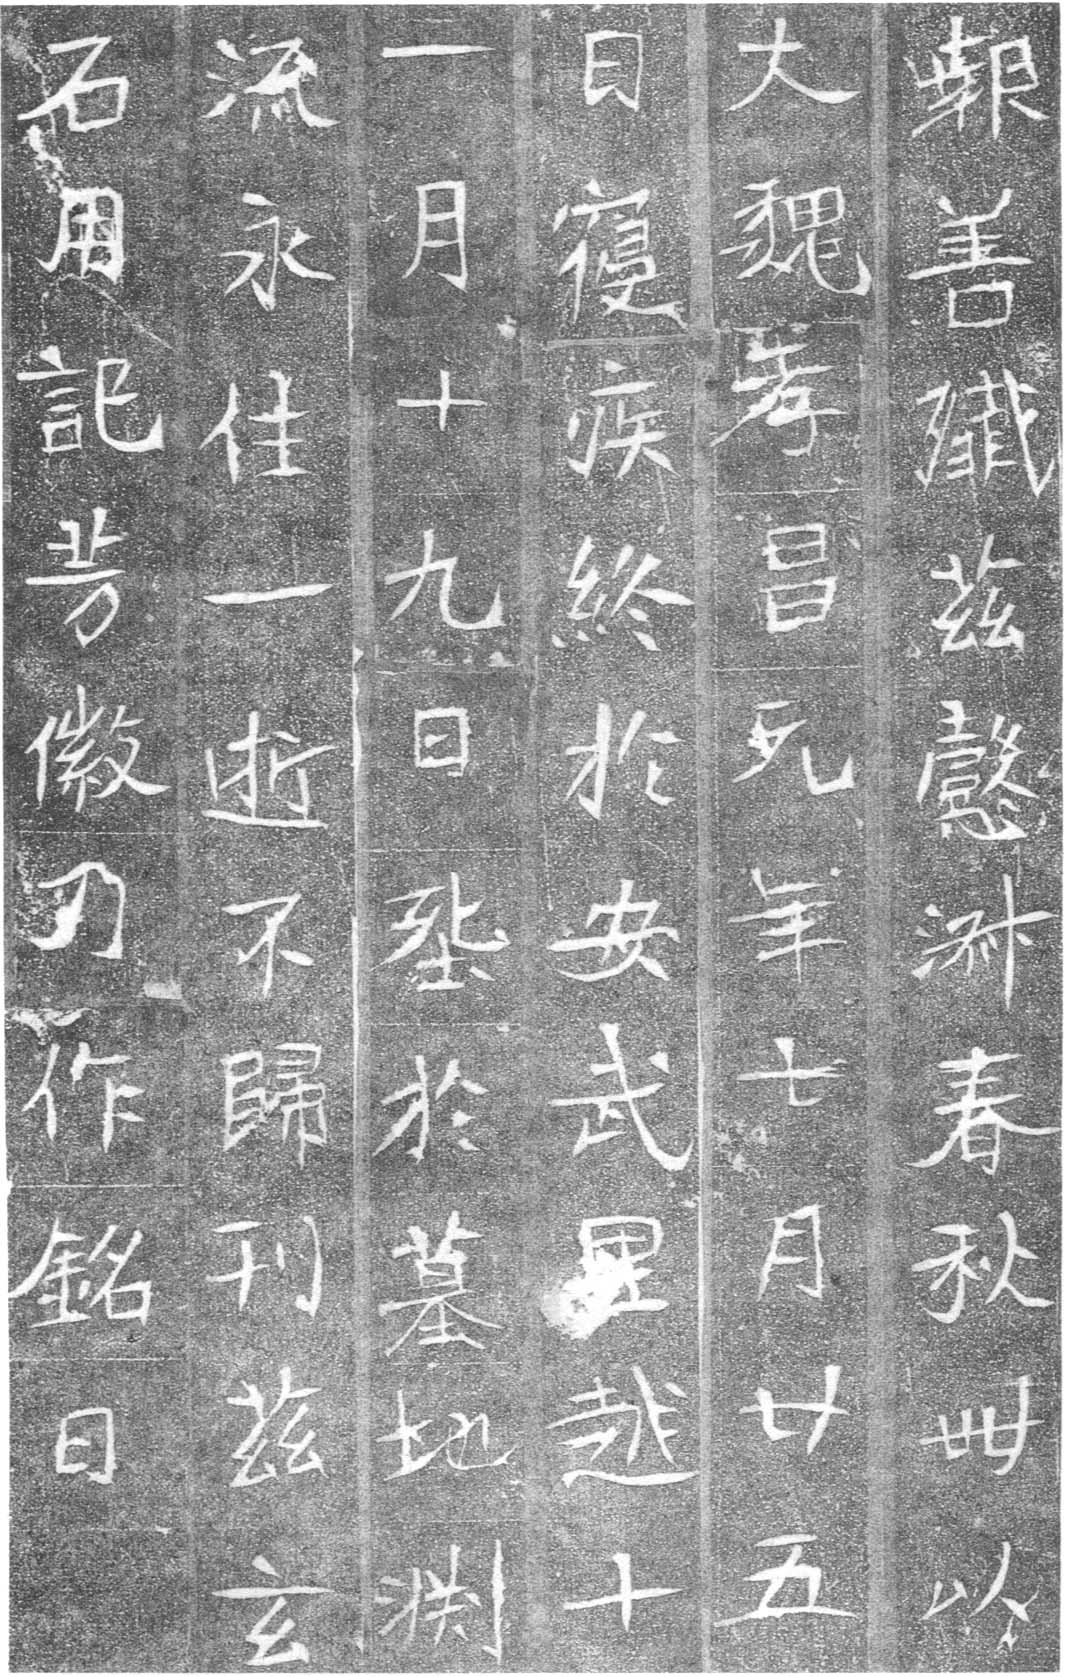 報善殲茲懿淑春秋卌以
大魏孝昌元年七月廿五
日寑疾終於安武里越十
一月十九日葬於墓地淵
流永隹一逝不歸刊茲玄
石用記芳徽乃作銘曰